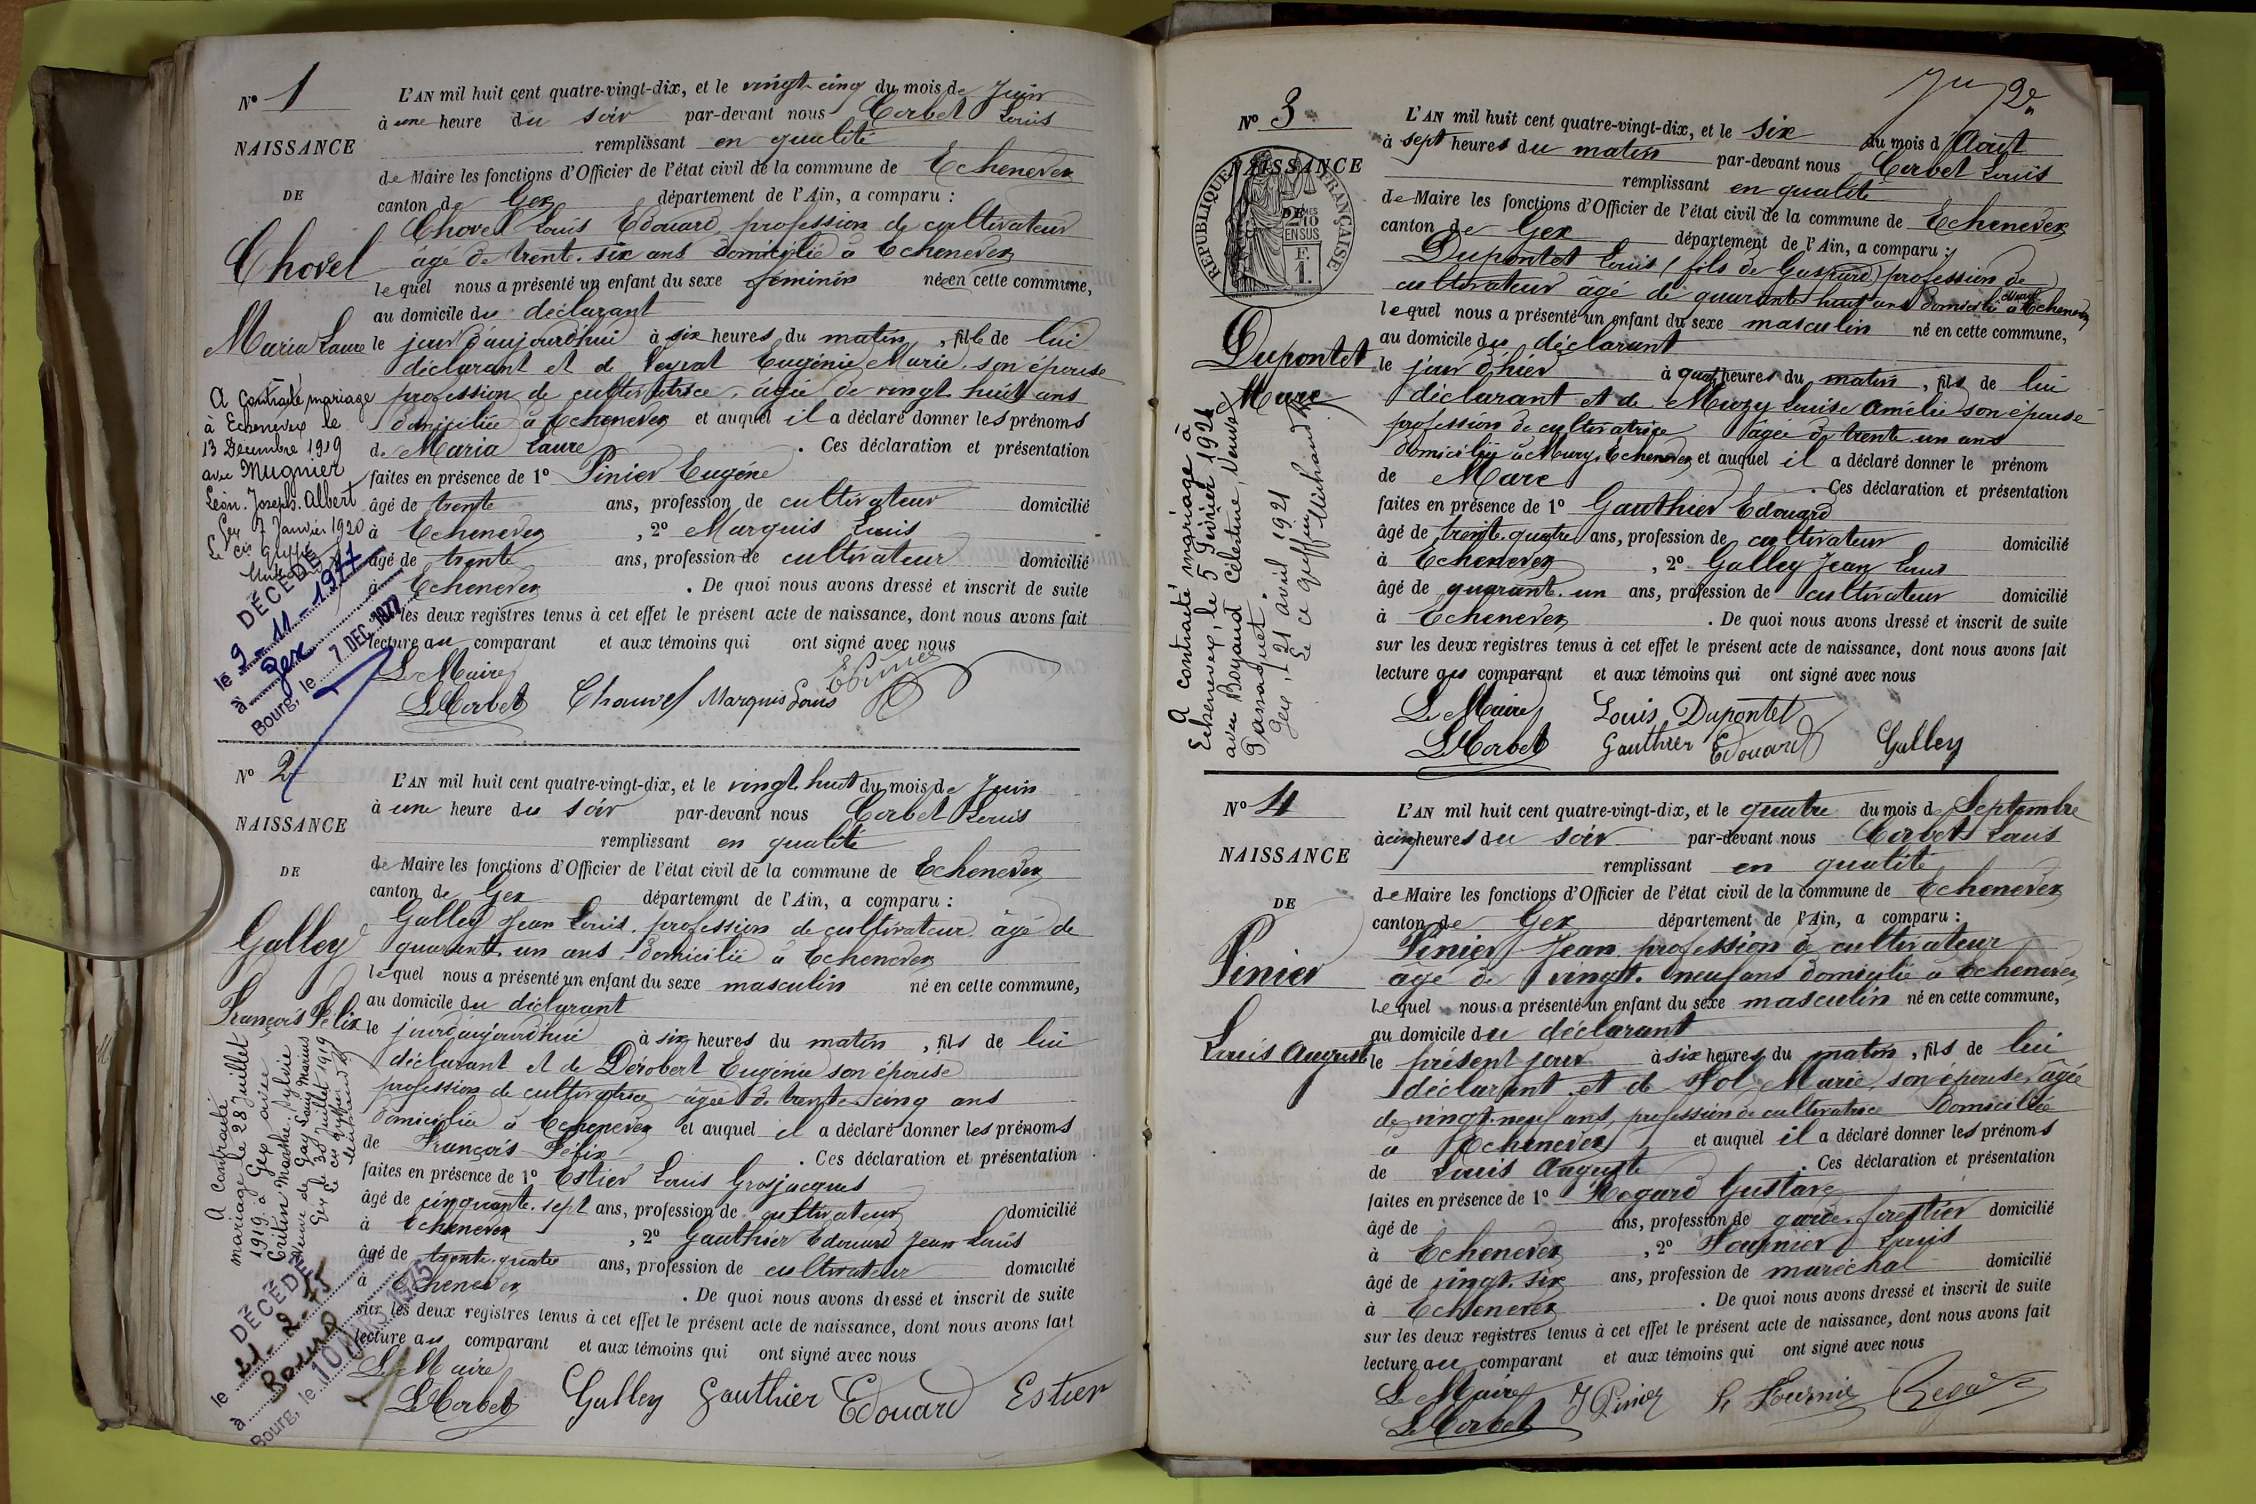 N° 1
NAISSANCE
DE
Chovel
Maria Laure
A contracté mariage
à Echenevex le
13 Décembre 1919
avec Mugnier
Léon Joseph Albert
Gex 7 Janvier 1920
Le cis Greffier
DÉCÉDÉE
le 9-11-1977
à Gex
Bourg, le 7 DEC. 1977
L'AN mil huit cent quatre-vingt-dix, et le vingt-cinq du mois de Juin
à une heure du soir par-devant nous Corbet Louis
remplissant en qualité
de Maire les fonctions d'Officier de l'état civil de la commune de Echenevex
canton de Gex département de l'Ain, a comparu :
Chovel Louis Edouard, profession de cultivateur
âgé de trente-six ans domicilié à Echenevex
lequel nous a présenté un enfant du sexe féminin née en cette commune,
au domicile du déclarant
le jour d'aujourd'hui à six heures du matin, fille de lui
déclarant et de Veyrat Eugénie Marie, son épouse
profession de cultivatrice, âgée de vingt huit ans
domiciliée à Echenevex et auquel il a déclaré donner les prénoms
de Maria Laure. Ces déclaration et présentation
faites en présence de 1° Pinier Eugène
âgé de trente ans, profession de cultivateur domicilié
à Echenevex, 2° Marquis Louis
âgé de trente ans, profession de cultivateur domicilié
à Echenevex. De quoi nous avons dressé et inscrit de suite
sur les deux registres tenus à cet effet le présent acte de naissance, dont nous avons fait
lecture au comparant et aux témoins qui ont signé avec nous
Le Maire
L. Corbet Chauvel Marquis Louis E Pinier
N° 2
NAISSANCE
DE
Galley
François Félix
A contracté
mariage le 28 Juillet
1919 à Gex avec
Marthe Sylvie
Veuve de Gay Louis Marius
Gex le 30 Juillet 1919
Le cis greffier
DÉCÉDÉ
le 21-2-75
à Bourg
Bourg, le 10 MARS 1975
L'AN mil huit cent quatre-vingt-dix, et le vingt huit du mois de Juin
à une heure du soir par-devant nous Corbet Louis
remplissant en qualité
de Maire les fonctions d'Officier de l'état civil de la commune de Echenevex
canton de Gex département de l'Ain, a comparu :
Galley Jean Louis, profession de cultivateur âgé de
quarante un ans domicilié à Echenevex
lequel nous a présenté un enfant du sexe masculin né en cette commune,
au domicile du déclarant
le jour d'aujourd'hui à six heures du matin, fils de lui
déclarant et de Dérobert Eugénie son épouse
profession de cultivatrice âgée de trente cinq ans
domiciliée à Echenevex et auquel il a déclaré donner les prénoms
de François Félix. Ces déclaration et présentation
faites en présence de 1° Estier Louis Grosjacques
âgé de cinquante-sept ans, profession de cultivateur domicilié
à Echenevex, 2° Gauthier Edouard Jean Louis
âgé de trente quatre ans, profession de cultivateur domicilié
à Echenevex. De quoi nous avons dressé et inscrit de suite
sur les deux registres tenus à cet effet le présent acte de naissance, dont nous avons fait
lecture au comparant et aux témoins qui ont signé avec nous
Le Maire
L. Corbet Galley Gauthier Edouard Estier
2e
N° 3
NAISSANCE
DE
RÉPUBLIQUE FRANÇAISE
2/10 EN SUS
F. 1.
Dupontet
Marc
A contracté mariage à
Echenevex, le 5 Février 1921
avec Boyaud Célestine, Veuve
Passaquet.
Gex, 21 avril 1921
Le cis greffier
Michaud
L'AN mil huit cent quatre-vingt-dix, et le six du mois d'Août
à sept heures du matin par-devant nous Corbet Louis
remplissant en qualité
de Maire les fonctions d'Officier de l'état civil de la commune de Echenevex
canton de Gex département de l'Ain, a comparu :
Dupontet Louis (fils de Gaspard) profession de
cultivateur âgé de quarante huit ans domicilié à Echenevex
lequel nous a présenté un enfant du sexe masculin né en cette commune,
au domicile du déclarant
le jour d'hier à quatre heures du matin, fils de lui
déclarant et de Louise Amélie son épouse
profession de cultivatrice âgée de trente un ans
domiciliée à Mury, Echenevex et auquel il a déclaré donner le prénom
de Marc. Ces déclaration et présentation
faites en présence de 1° Gauthier Edouard
âgé de trente-quatre ans, profession de cultivateur domicilié
à Echenevex, 2° Galley Jean Louis
âgé de quarante-un ans, profession de cultivateur domicilié
à Echenevex. De quoi nous avons dressé et inscrit de suite
sur les deux registres tenus à cet effet le présent acte de naissance, dont nous avons fait
lecture au comparant et aux témoins qui ont signé avec nous
Le Maire Louis Dupontet
L. Corbet Gauthier Edouard Galley
N° 4
NAISSANCE
DE
Pinier
Louis Auguste
L'AN mil huit cent quatre-vingt-dix, et le quatre du mois de Septembre
à cinq heures du soir par-devant nous Corbet Louis
remplissant en qualité
de Maire les fonctions d'Officier de l'état civil de la commune de Echenevex
canton de Gex département de l'Ain, a comparu :
Pinier Jean profession de cultivateur
âgé de vingt-neuf ans domicilié à Echenevex
lequel nous a présenté un enfant du sexe masculin né en cette commune,
au domicile du déclarant
le présent jour à six heures du matin, fils de lui
déclarant et de Marie, son épouse, âgée
de vingt-neuf ans, profession de cultivatrice domiciliée
à Echenevex et auquel il a déclaré donner les prénoms
de Louis Auguste. Ces déclaration et présentation
faites en présence de 1° Regard Gustave
âgé de ans, profession de garde-forestier domicilié
à Echenevex, 2° Fournier Louis
âgé de vingt-six ans, profession de maréchal domicilié
à Echenevex. De quoi nous avons dressé et inscrit de suite
sur les deux registres tenus à cet effet le présent acte de naissance, dont nous avons fait
lecture au comparant et aux témoins qui ont signé avec nous
Le Maire
L. Corbet J Pinier L. Fournier Regard